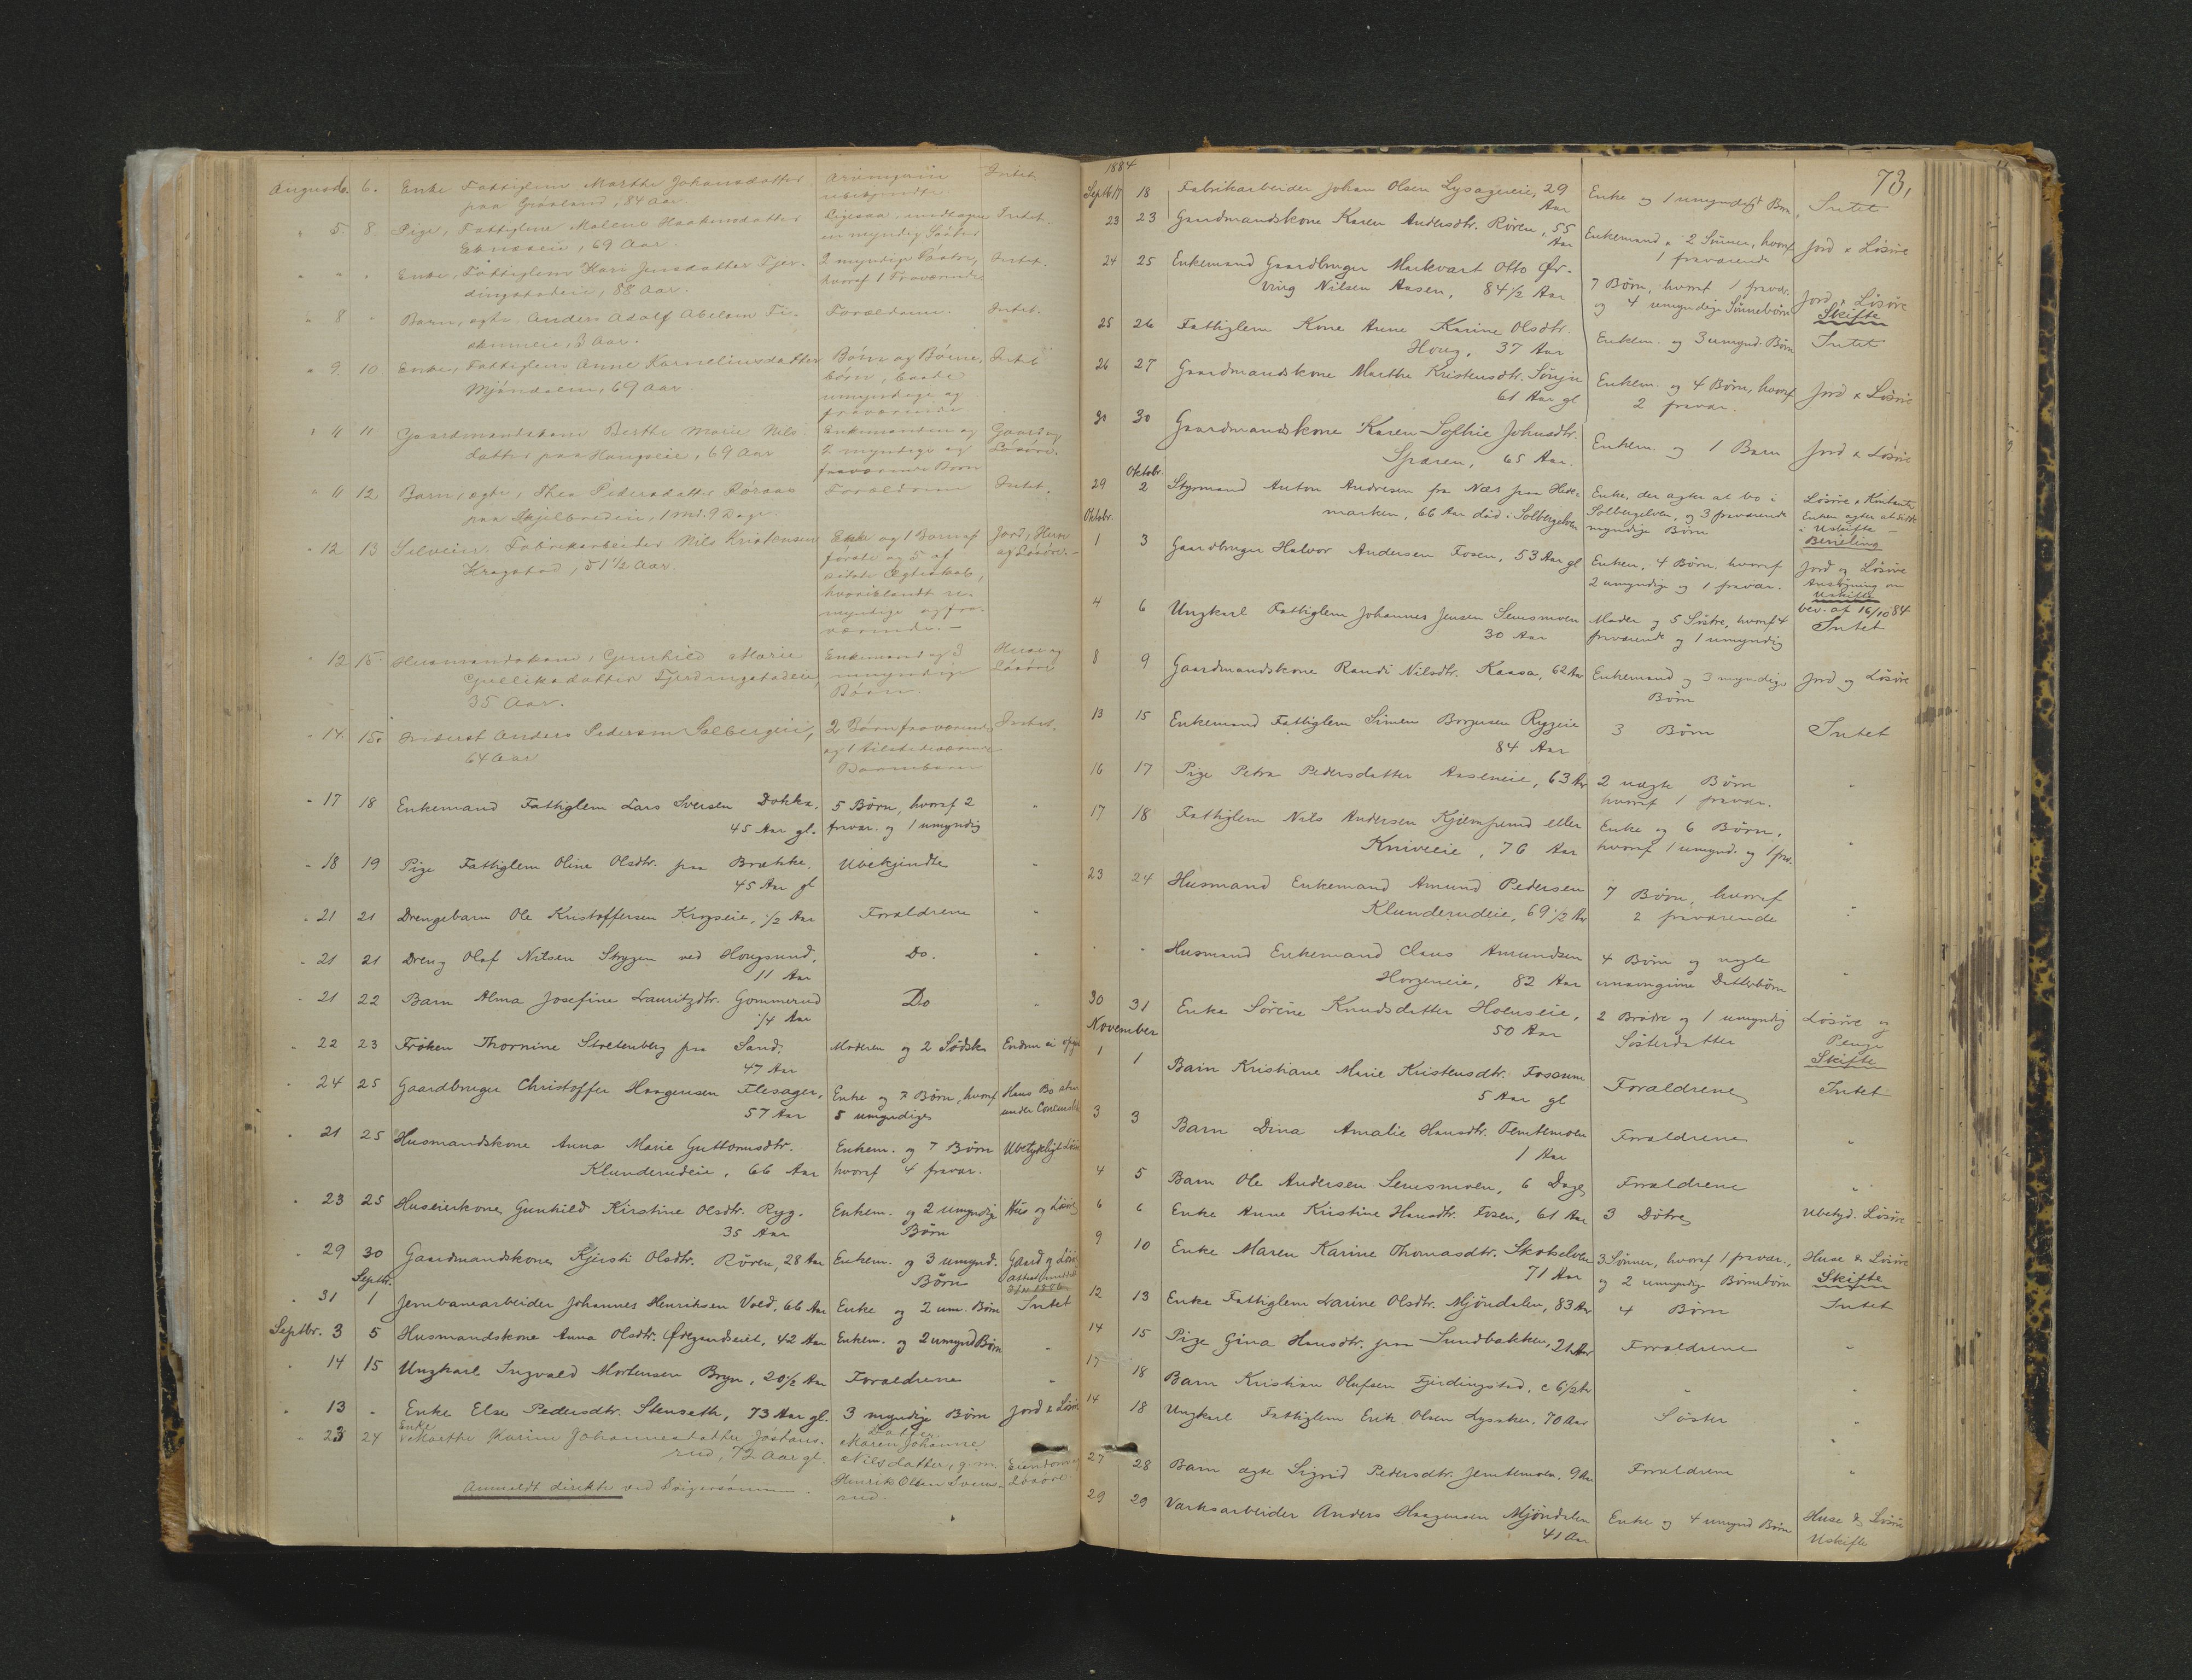 August 6. 6. Enke Fattiglem Marthe Johansdatter Arvingerne Intet
paa Graaland, 84 Aar. ubekjendte
" 5. 8. Pige, Fattiglem Malene Haakensdatter Ligesaa, undtagen Intet.
69 Aar. en myndig Søster
" " " Enke, Fattiglem Kari Jensdatter Fjer- 2 myndige Døtre, Intet.
dingstadeie, 88 Aar. hvoraf 1 Fraværende
" 8 " Barn, ægte Anders Adolf Abelsen Forældrene. Intet.
3 Aar.
" 9. 10 Enke, Fattiglem Anne Korneliusdatter Børn og Børne- Intet
Mjøndalen, 69 Aar. børn, baade
umyndige og
fraværende
" 11 11 Gaardmandskone Berthe Marie Nils- Enkemanden og Gaard og
datter paa Hougseie, 69 Aar 2 myndige og Løsøre.
fraværende Børn
" 11 12 Barn, ægte, Thea Pedersdatter Røraas Forældrene Intet.
paa Skjelbredeie, 1 Md. 9 Dage.
" 12 13 Selveier Fabrikarbeider Nils Kristensen Enke og 1 Barn af Jord, Huse
Kragstad, 51 1/2 Aar. første og 5 af og Løsøre.
sidste Ægteskab,
hvoriblandt u-
myndige og fra-
værende.
" 12 15. Husmandskone, Gunhild Marie Enkemand og 3 Huse og
Gulliksdatter Fjerdingstadeie, umyndige Løsøre
35 Aar. Børn.
" 14. 15. Inderst Anders Pedersen Solbergeie, 2 Børn fraværende Intet.
64 Aar og 1 tilstedeværende
Barnebarn
" 17 18 Enkemand Fattiglem Lars Iversen Dokka. 5 Børn, hvoraf 2 "
45 Aar gl. fravær. og 1 umyndig
" 18 19 Pige Fattiglem Oline Olsdtr. paa Brække. Ubekjendte "
45 Aar gl
" 21 21 Drengebarn Ole Kristoffersen Krogseie, 1/2 Aar Forældrene "
" 21 21 Dreng Olaf Nilsen Strygen ved Hougsund. Do. "
11 Aar
" 21 22 Barn Alma Josefine Lauritzdtr. Gommerud Do "
1/4 Aar
" 22 23 Frøken Thornine Stretenberg paa Sand. Moderen og 2 Sødsk.
47 Aar
" 24 25 Gaardbruger Christoffer Haagensen Flesager, Enke og 7 Børn, hvoraf Hans Bo
57 Aar 5 umyndige under
" 21 25 Husmandskone Anna Marie Guttormsdtr. Enkem. og 7 Børn Ubetydeligt
Klunderudeie, 66 Aar hvoraf 4 fravær.
" 23 25 Huseierkone Gunhild Kirstine Olsdtr. Ryg. Enkem. og 2 umyndige Hus og Løsøre
35 Aar Børn
" 29 30 Gaardmandskone Kjersti Olsdtr. Røren, 28 Aar Enkem. og 3 umynd. Gaard og
Septbr. Børn
" 31 1 Jernbanearbeider Johannes Henriksen Vold, 66 Aar Enke og 2 um. Børn Intet
Septbr. 3 5 Husmandskone Anna Olsdtr. 42 Aar Enkem. og 2 umynd Børn "
" 14 15 Ungkarl Ingvald Mortensen Bryn, 20 1/2 Aar Forældrene "
" 13 " Enke Else Pedersdtr. Stenseth, 73 Aar gl. 3 myndige Børn Jord & Løsøre
" 23 24 Enke Marthe Karine Johannesdatter Jostans- Datter Maren Johanne
rud, 72 Aar gl. Nilsdatter, g. m. Eiendom
Anmeldt direkte ved Svigersønnen. Henrik Olsen Sven- Løsøre
rud.
1884
73.
Sept 16/17 18 Fabrikarbeider Johan Olsen Lysagereie, 29 Enke og 1 umyndigt Barn, Intet
Aar
23 23 Gaardmandskone Karen Andersdtr. Røren, 55 Enkemand & 2 Sønner, hvoraf Jord & Løsøre
Aar 1 fraværende
24 25 Enkemand Gaardbruger Markvart Otto Ør- 7 Børn, hvoraf 1 fravær. Jord & Løsøre
ving Nilsen Aasen, 84 1/2 Aar og 4 umyndige Sønnebørn Skifte
25 26 Fattiglem Kone Anne Karine Olsdtr. Enkem. og 3 umynd. Børn Intet
Houg, 37 Aar
26 27 Gaardmandskone Marthe Kristensdtr. Enkem. og 4 Børn, hvoraf Jord & Løsøre
61 Aar gl 2 fravær.
30 30 Gaardmandskone Karen Sofhie Johnsdtr. Enkem. og 1 Barn Jord & Løsøre
Spæren, 65 Aar.
Oktobr.
29 2 Styrmand Anton Andresen fra Næs paa Hede- Enke, der agter at bo i Løsøre & Kontanter
marken, 66 Aar død i Solbergelven Solbergelven, og 3 fraværende Enken agter at sidde
myndige Børn i Uskifte
Oktobr. Bevilling
1 3 Gaardbruger Halvor Andersen Fosen, 53 Aar gl Enken, 4 Børn, hvoraf Jord og Løsøre
2 umyndige og 1 fravær. Ansøgning om
Uskifte
bev. af 16/10 84
4 6 Ungkarl Fattiglem Johannes Jensen Semsmoen Moder og 5 Søstre, hvoraf 4 Intet
30 Aar fraværende og 1 umyndig
8 9 Gaardmandskone Randi Nilsdtr. Kaasa, 62 Aar Enkemand og 3 myndige Jord og Løsøre
Børn
13 15 Enkemand Fattiglem Simen Borgersen Ryggeie 3 Børn Intet
84 Aar
16 17 Pige Petra Pedersdatter Aaseneie, 63 Aar 2 uægte Børn "
hvoraf 1 fravær.
17 18 Fattiglem Nils Andersen Kjemperud eller Enke og 6 Børn, "
Kniveeie, 76 Aar hvoraf 1 umynd. og 1 fra.
23 24 Husmand Enkemand Amund Pedersen 7 Børn, hvoraf "
Klunderudeie, 69 1/2 Aar 2 fraværende
" " Husmand Enkemand Claus Amundsen 4 Børn og nogle "
Horgeneie, 82 Aar umyndige Datterbørn
30 31 Enke Sørine Knudsdatter Hoenseie, 2 Brødre og 1 umyndig Løsøre og
50 Aar Søsterdatter Penge
November Skifte
1 1 Barn Kristiane Marie Kristensdtr. Fossum Forældrene Intet
5 Aar gl
3 3 Barn Dina Amalie Hansdtr. Temtemoen Forældrene "
1 Aar
4 5 Barn Ole Andersen Semsmoen, 6 Dage Forældrene "
6 6 Enke Anne Kristine Hansdtr. Fosen, 61 Aar 3 Døtre Ubetyd. Løsøre
9 10 Enke Maren Karine Thomasdtr. Skotselven 3 Sønner, hvoraf 1 fravær., Huse & Løsøre
71 Aar og 2 umyndige Børnebørn Skifte
12 13 Enke Fattiglem Karine Olsdtr. Mjøndalen, 83 Aar 4 Børn Intet
14 15 Pige Gina Hansdtr. paa Sundbakken, 21 Aar Forældrene "
17 18 Barn Kristian Olufsen Fjerdingstad, c 6 1/2 Aar " "
14 18 Ungkarl Fattiglem Erik Olsen Lysaker, 70 Aar Søster "
27 28 Barn ægte Sigrid Pedersdtr. Jemtemoen, 9 Aar Forældrene "
29 29 Værksarbeider Anders Haagensen Mjøndalen Enke og 4 umynd Børn Huse & Løsøre
41 Aar Uskifte